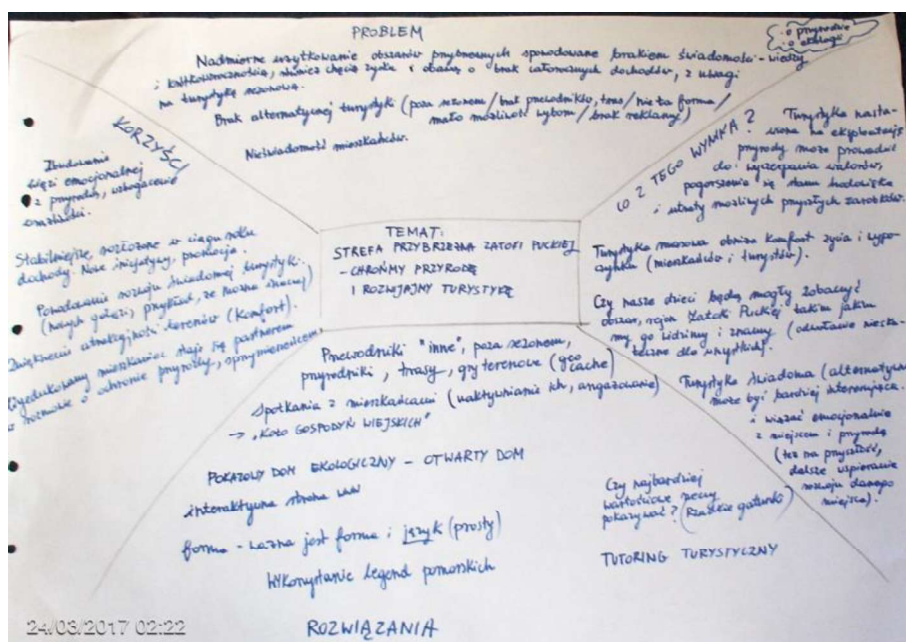 PROBLEM
o przyrodzie
o ekologii
Nadmierne użytkowanie obszarów przybrzeżnych spowodowane brakiem świadomości - wiedzy
i krótkowzrocznością, również chęcią zysku i obawą o brak całorocznych dochodów, z uwagi
na turystykę sezonową.
Brak alternatywnej turystyki (poza sezonem / brak przewodników, tras / nie ta forma /
mało możliwości wyboru / brak reklamy)
Nieświadomość mieszkańców.
KORZYŚCI
Zbudowanie
więzi emocjonalnej
z przyrodą, wzbogacenie
wrażliwości.
Stabilniejsze, rozłożone w ciągu roku
dochody. Nowe inicjatywy, promocja.
Powodowanie rozwoju świadomej turystyki.
(nowych gałęzi, przykład, że można inaczej)
Zwiększenie atrakcyjności terenów (komfort).
Wyedukowany mieszkaniec staje się partnerem
w rozmowie o ochronie przyrody, sprzymierzeńcem
TEMAT:
STREFA PRZYBRZEŻNA ZATOKI PUCKIEJ
- CHROŃMY PRZYRODĘ
I ROZWIJAJMY TURYSTYKĘ
CO Z TEGO WYNIKA?
Turystyka nasta-
wiona na eksploatację
przyrody może prowadzić
do wyczerpania walorów,
pogorszenia się stanu środowiska
i utraty możliwych przyszłych zarobków.
Turystyka masowa obniża komfort życia i wypo-
czynku (mieszkańców i turystów).
Czy nasze dzieci będą mogły zobaczyć
obszar, rejon Zatoki Puckiej takim jakim
my go widzimy i znamy (odwrotnie nieska-
teczne dla wszystkich).
Turystyka świadoma (alternatywna)
może być bardziej interesująca.
i wiązać emocjonalnie
z miejscem i przyrodą
(też na przyszłość,
dalsze wspieranie
rozwoju danego
miejsca).
Przewodniki "inne", poza sezonem,
przyrodniki, trasy, gry terenowe (geo
cache)
Spotkania z mieszkańcami (uaktywnianie ich, angażowanie)
→ "KOŁO GOSPODYŃ WIEJSKICH"
POKAZOWY DOM EKOLOGICZNY - OTWARTY DOM
interaktywna strona www
forma - ważna jest forma i język (prosty)
Wykorzystanie legend pomorskich
Czy najbardziej
wartościowe rzeczy
pokazywać? (Rzadkie gatunki)
TUTORING TURYSTYCZNY
ROZWIĄZANIA
24/03/2017 02:22